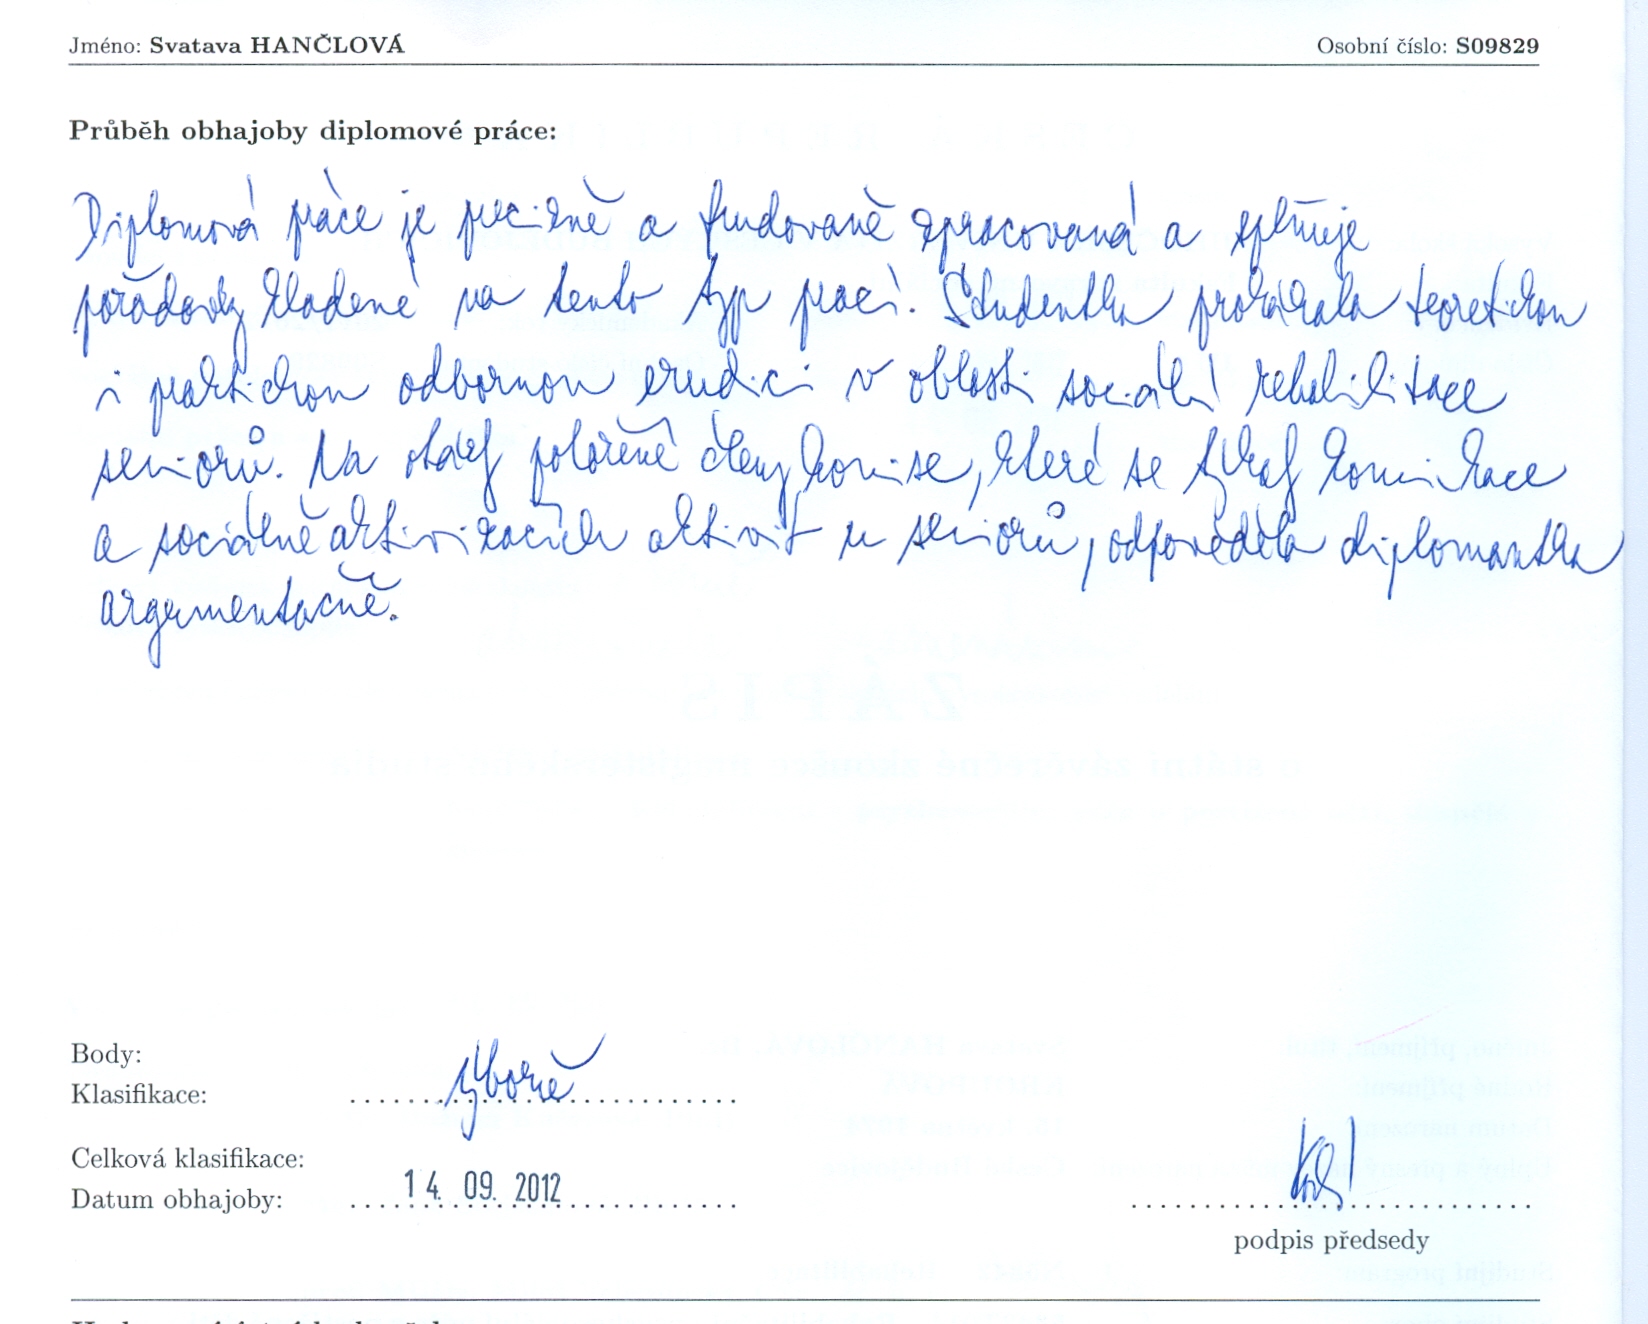 Jméno: Svatava HANČLOVÁ Osobní číslo: S09829
Průběh obhajoby diplomové práce:
Diplomová práce je precizně a fundovaně zpracovaná a splňuje
požadavky kladené na tento typ prací. Studentka prokázala teoretickou
i praktickou odbornou erudici v oblasti sociální rehabilitace
seniorů. Na otázky položené členy komise, které se týkaly komunikace
a sociálně aktivizačních aktivit u seniorů, odpověděla diplomantka
argumentačně.
Body:
Klasifikace: výborně
Celková klasifikace:
Datum obhajoby: 14. 09. 2012
podpis předsedy